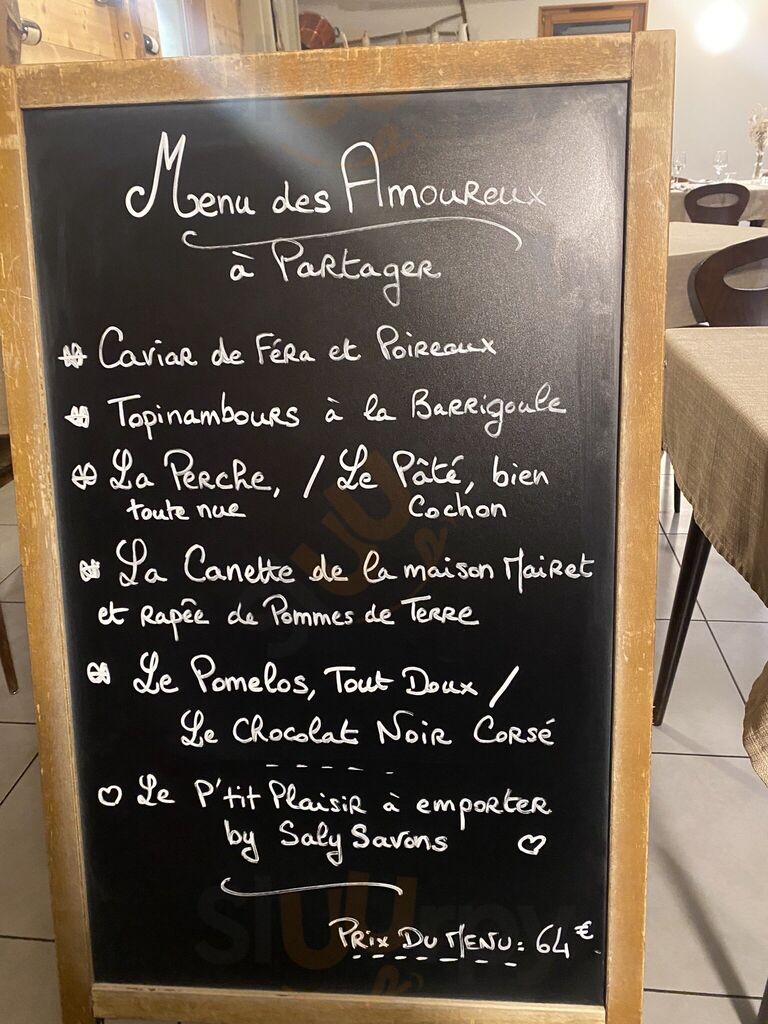 Menu des Amoureux
à Partager
Caviar de Féra et Poireaux
Topinambours à la Barrigoule
La Perche, / Le Pâté, bien
toute nue Cochon
La Canette de la maison Mairet
et Rapée de Pommes de Terre
Le Pomelos, Tout Doux /
Le Chocolat Noir Corsé
Le P'tit Plaisir à emporter
by Saly Savons
Prix Du Menu: 64€
sluurpy